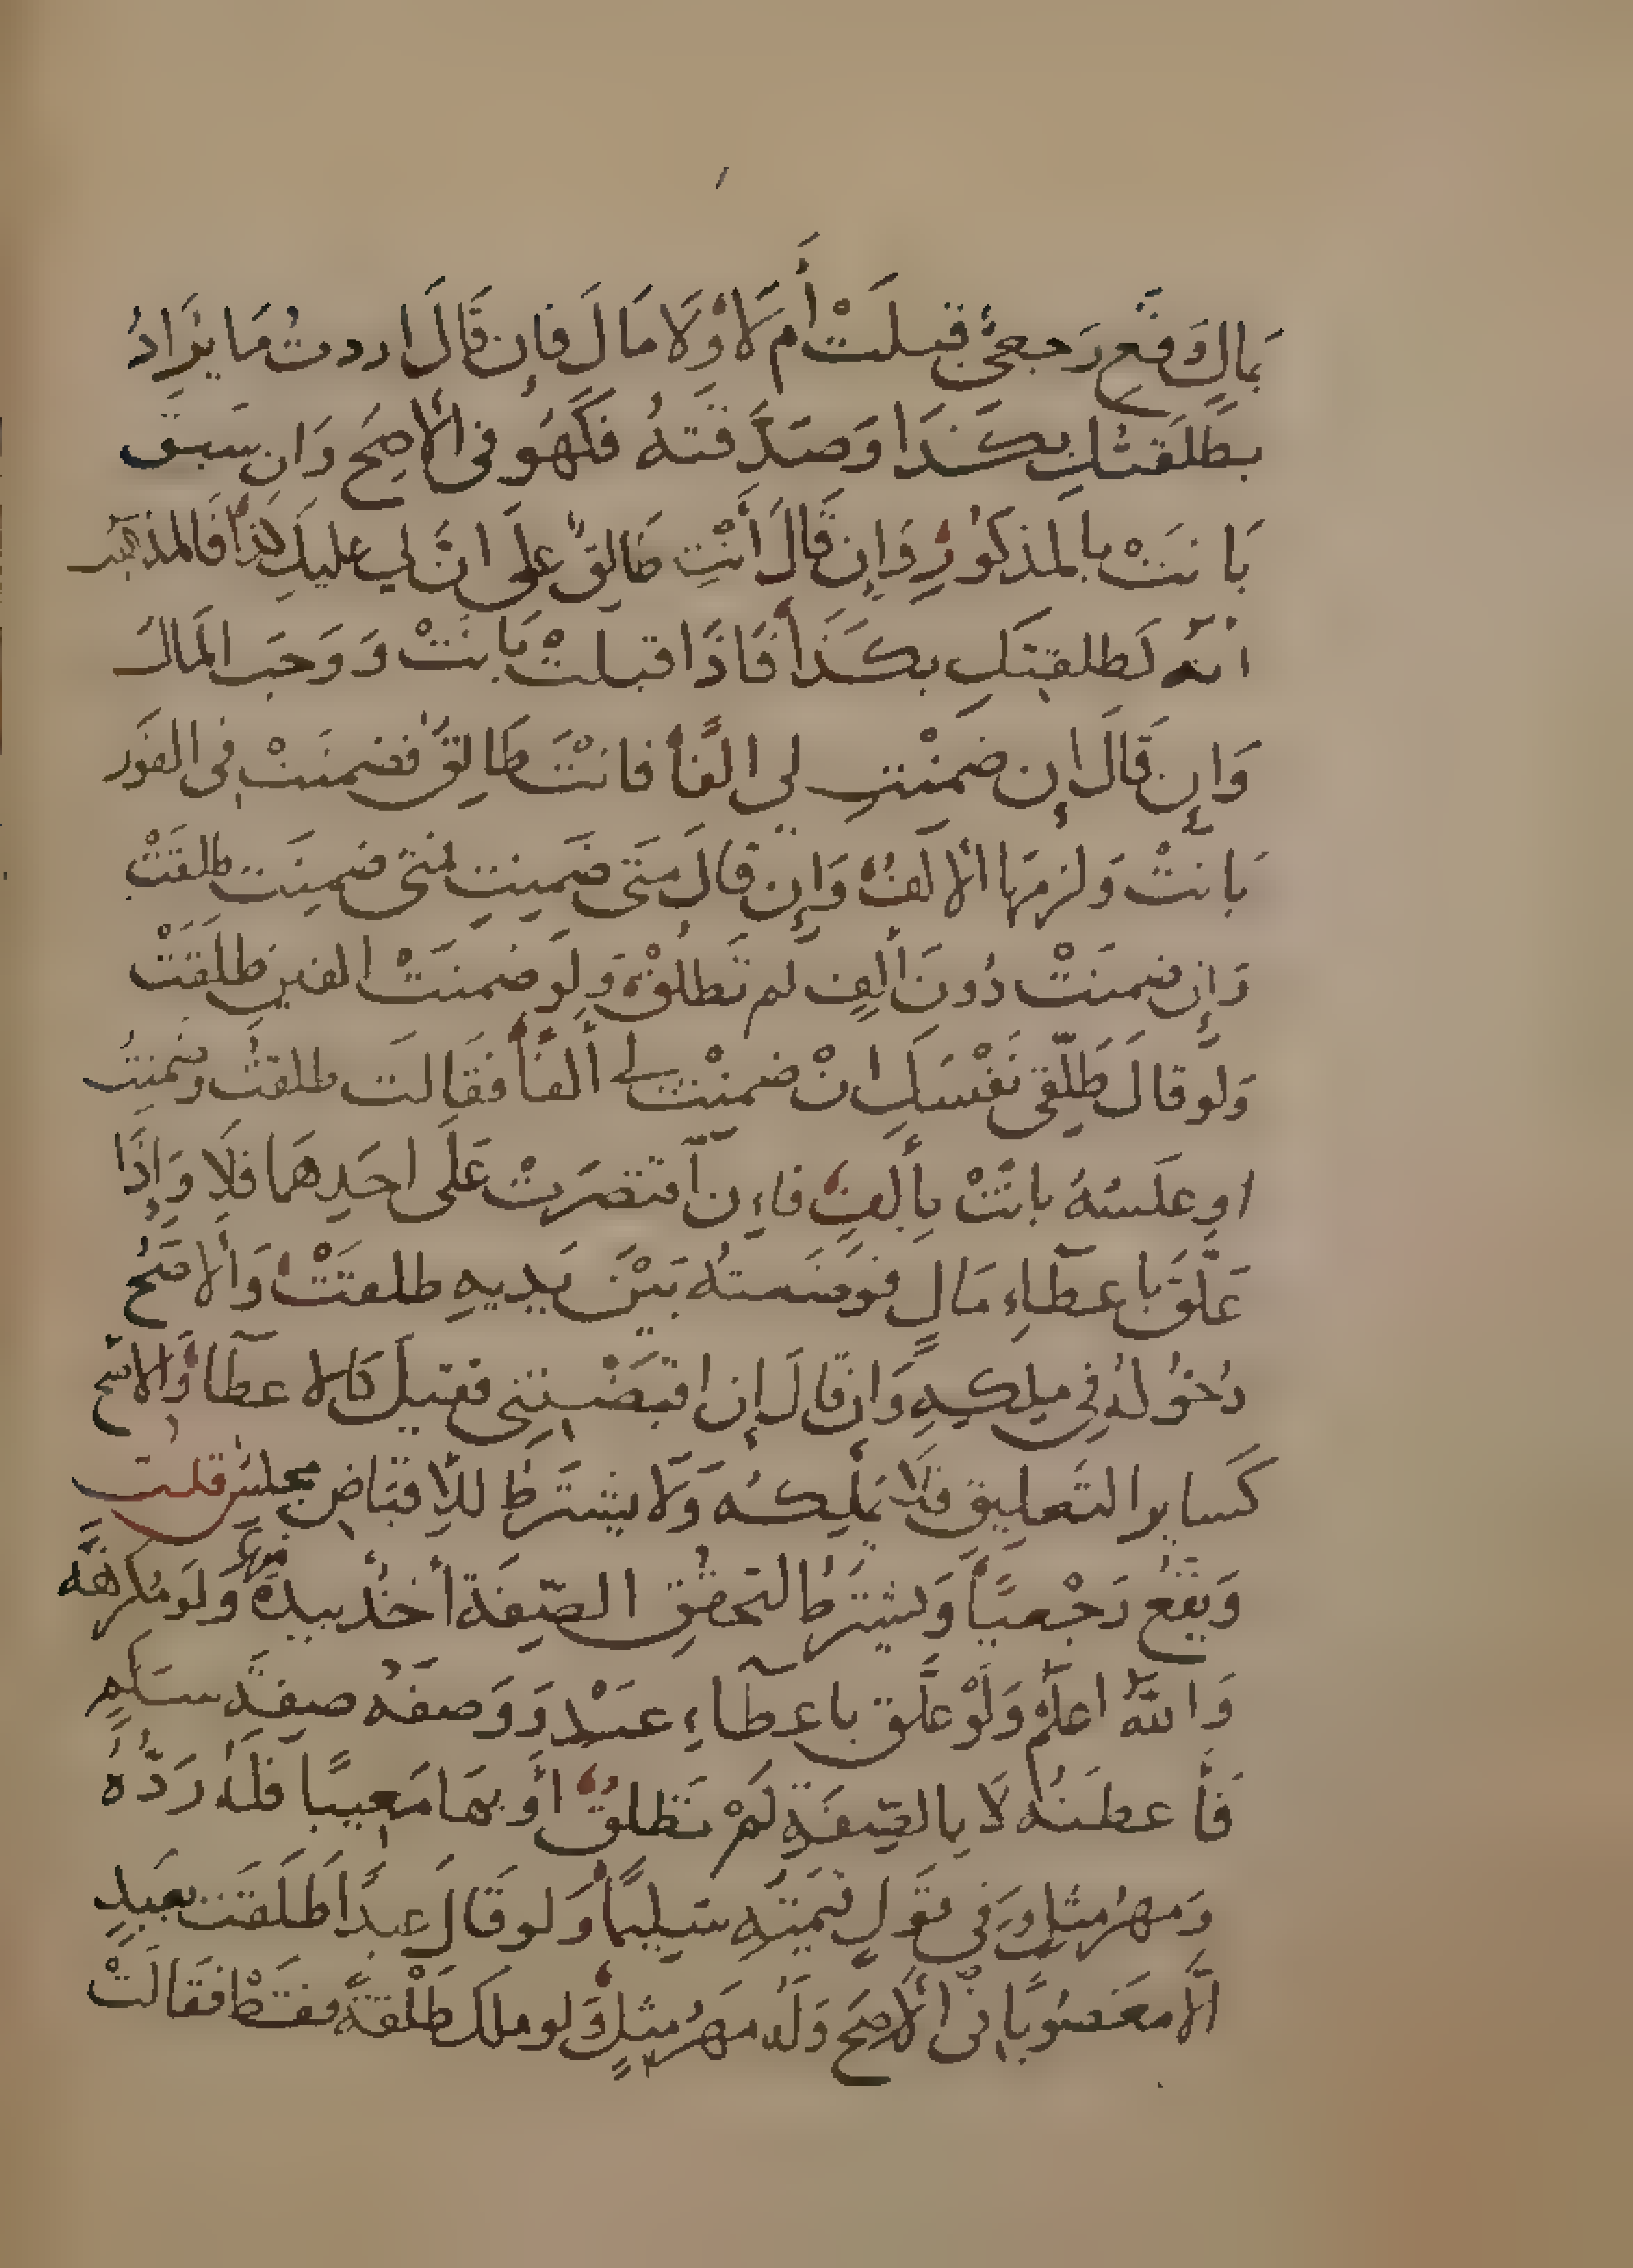 بمال وقع رجعي قبلت أم لا ولا مال فإن قال اردت ما يراد
بطلقتك بكذا وصدقته فكهو في الأصح وان سبق
بانت بالمذكور وإن قال أنت طالق على ان لي عليك كذا فالمذهب
انه كطلقتك بكذا فاذا قبلت بانت ووجب المال
وإن قال إن ضمنت لي الفا فانت طالق فضمنت في الفور
بانت ولزمها الالف وإن قال متى ضمنت فمتى ضمنت طلقت
وإن ضمنت دون ألف لم تطلق ولو ضمنت الفين طلقت
ولو قال طلقي نفسك ان ضمنت لي ألفا فقالت طلقت وضمنت
او عكسه بانت بألف فإن اقتصرت على احدهما فلا وإذا
علق باعطاء مال فوضعته بين يديه طلقت والاصح
دخوله في ملكه وان قال إن اقبضتني فقيل كالاعطا والاصح
كساير التعليق فلا يملكه ولا يشترط للاقباض مجلس قلت
ويقع رجعيا ويشترط لتحقق الصفة أخذ بيده منها ولو مكرهة
والله اعلم ولو علق باعطاء عبد ووصفه صفة سلم
فأعطته لا بالصفة لم تطلق أو بها معيبا فله رده
ومهر مثل وفي قول قيمته سليما ولو قال عبدا طلقت بعبد
الا مغصوبا في الأصح وله مهر مثل ولو ملك طلقة فقط فقالت